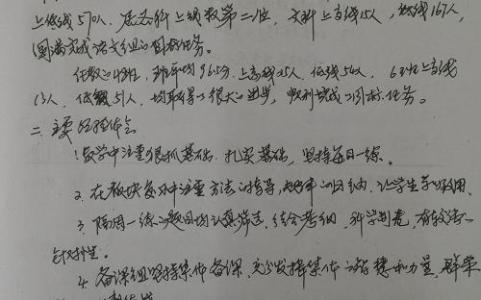 上线570人,居各科上线数第二位,文科上高线15人,低线167人,
圆满完成语文组的目标任务。
任教的48班,班平均96.5分,上高线25人,低线54人,63班上高线
13人,低线51人,均取得了很大的进步,顺利完成了目标任务。
二、主要经验体会
1、教学中注重狠抓基础,扎实基础,坚持每日一练。
2、在板块复习中注重方法的指导,归纳,让学生学以致用。
3、隔周一练的题目均认真筛选,结合考纲,科学制卷,有较强的
针对性。
4、备课组坚持集体备课,充分发挥集体的智慧和力量,群策